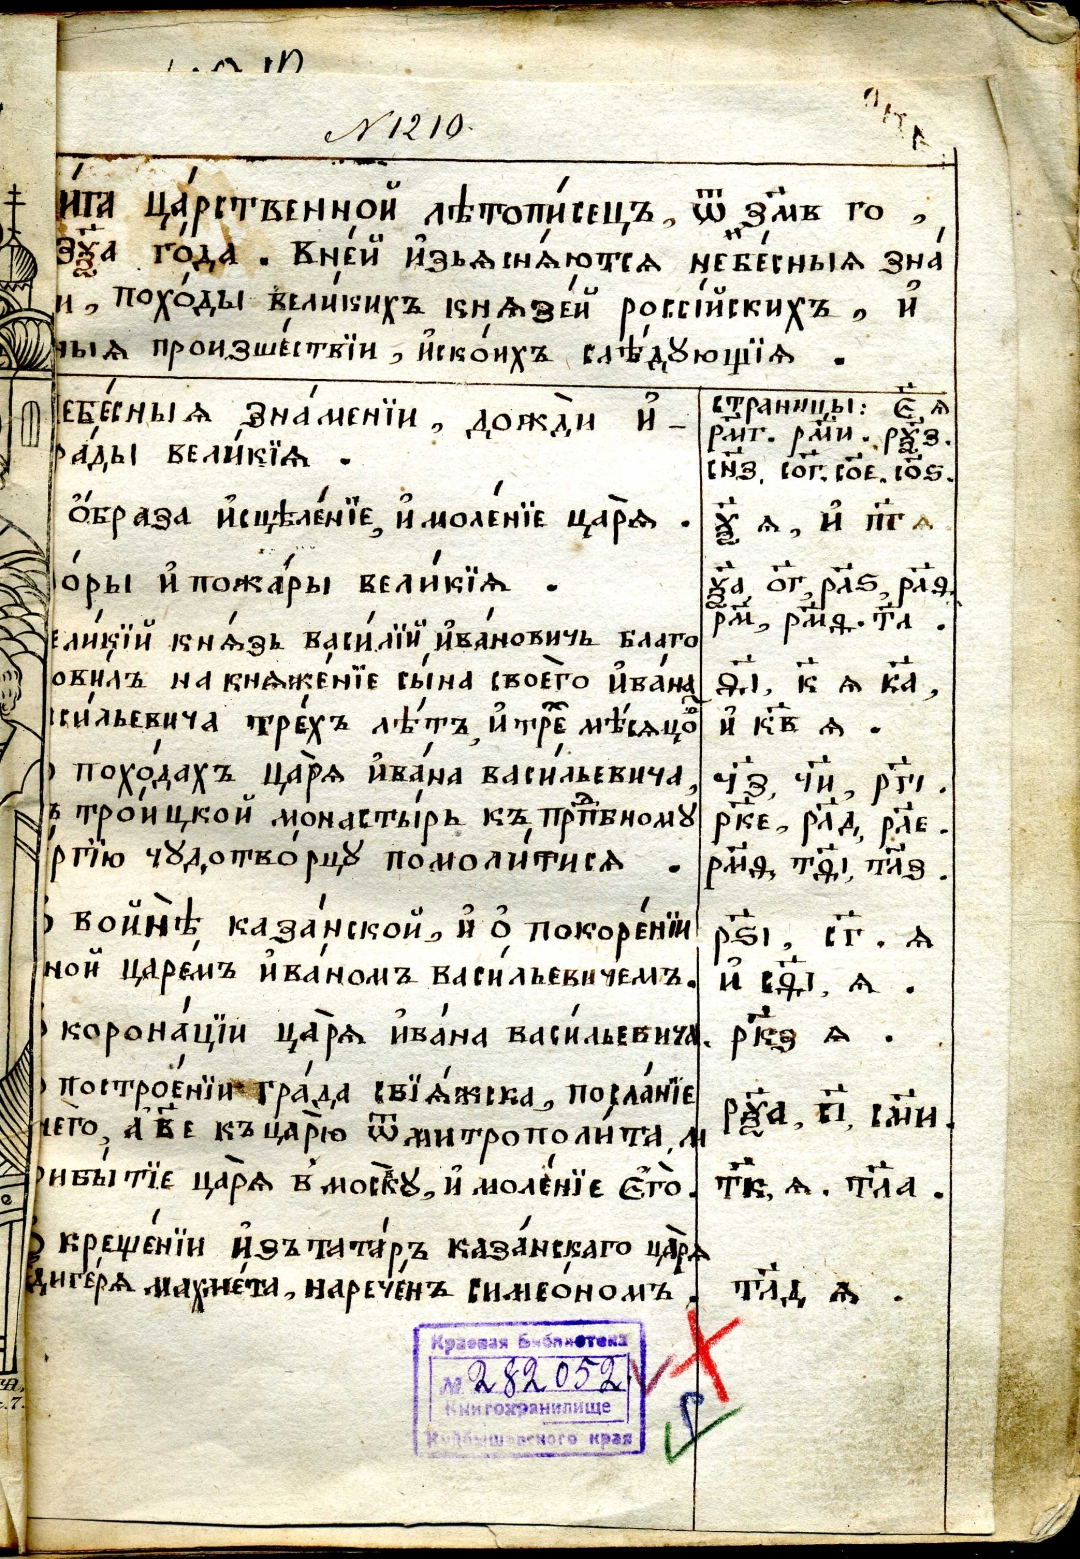 N 1210.
и́га ца́рственной лѣтопи́сецъ, ѿ зм҃в го,
го́да. вне́й и҆зьясня́ются небе́сныя зна́
и, похо́ды вели́кихъ князе́й россі́йскихъ, и҆
ныя произше́ствїи, и҆ско́ихъ слѣ́дующїя.
ебе́сныя зна́менїи, дождѝ и҆
ра́ды вели́кїя.
страницы: є҃ я
рм҃г. рм҃и. рѯ҃з.
сн҃з. со҃г. со҃е. со҃ѕ.
о҆́браза и҆сцѣле́нїе, и҆ моле́нїе царя̀.
ѯ҃ я, и҆ пг҃ я
о́ры и҆ пожа́ры вели́кїя.
ѯ҃а, о҃г, рл҃ѕ, рл҃ѳ,
рм҃, рм҃ѳ. тл҃.
ели́кїй кня́зь васи́лїй и҆ва́новичь благо
овилъ на княже́нїе сы́на своего̀ и҆ва́на
си́льевича тре́хъ лѣ́тъ, и҆ тре́ мѣ́сяцо́
ѳ҃і, к҃ я к҃а,
и҆ к҃в я.
похо́дахъ царя̀ и҆ва́на васи́льевича,
тро́ицкой монасты́рь къ прпⷣбному
ргїю чудотво́рцу помоли́тися.
ч҃з, ч҃и, рг҃і.
рк҃е, рл҃д, рл҃е.
рм҃ѳ, тѳ҃і, тл҃з.
войнѣ̀ каза́нской, и҆ о҆ покоре́нїи
ной царе́мъ и҆ва́номъ васи́льевичемъ.
рѕ҃і, сг҃. я
и҆ сѳ҃і, я.
корона́цїи царя̀ и҆ва́на васи́льевича.
рк҃з я.
построе́нїи гра́да свїя́жска, посла́нїе
него̀, а҆ в҃ е къ царю̀ ѿ митрополи́та, м
рѯ҃а, с҃і, см҃и.
рибы́тїе царя̀ в̾ москву̀, и҆ моле́нїе є҆го̀.
тк҃, я. тл҃а.
креще́нїи и҆зъ тата́ръ каза́нскаго царя̀
диге́ря махме́та, нарече́нъ симео́номъ.
тл҃д я.
Краевая Библиотека
№ 282052
Книгохранилище
Куйбышевского края